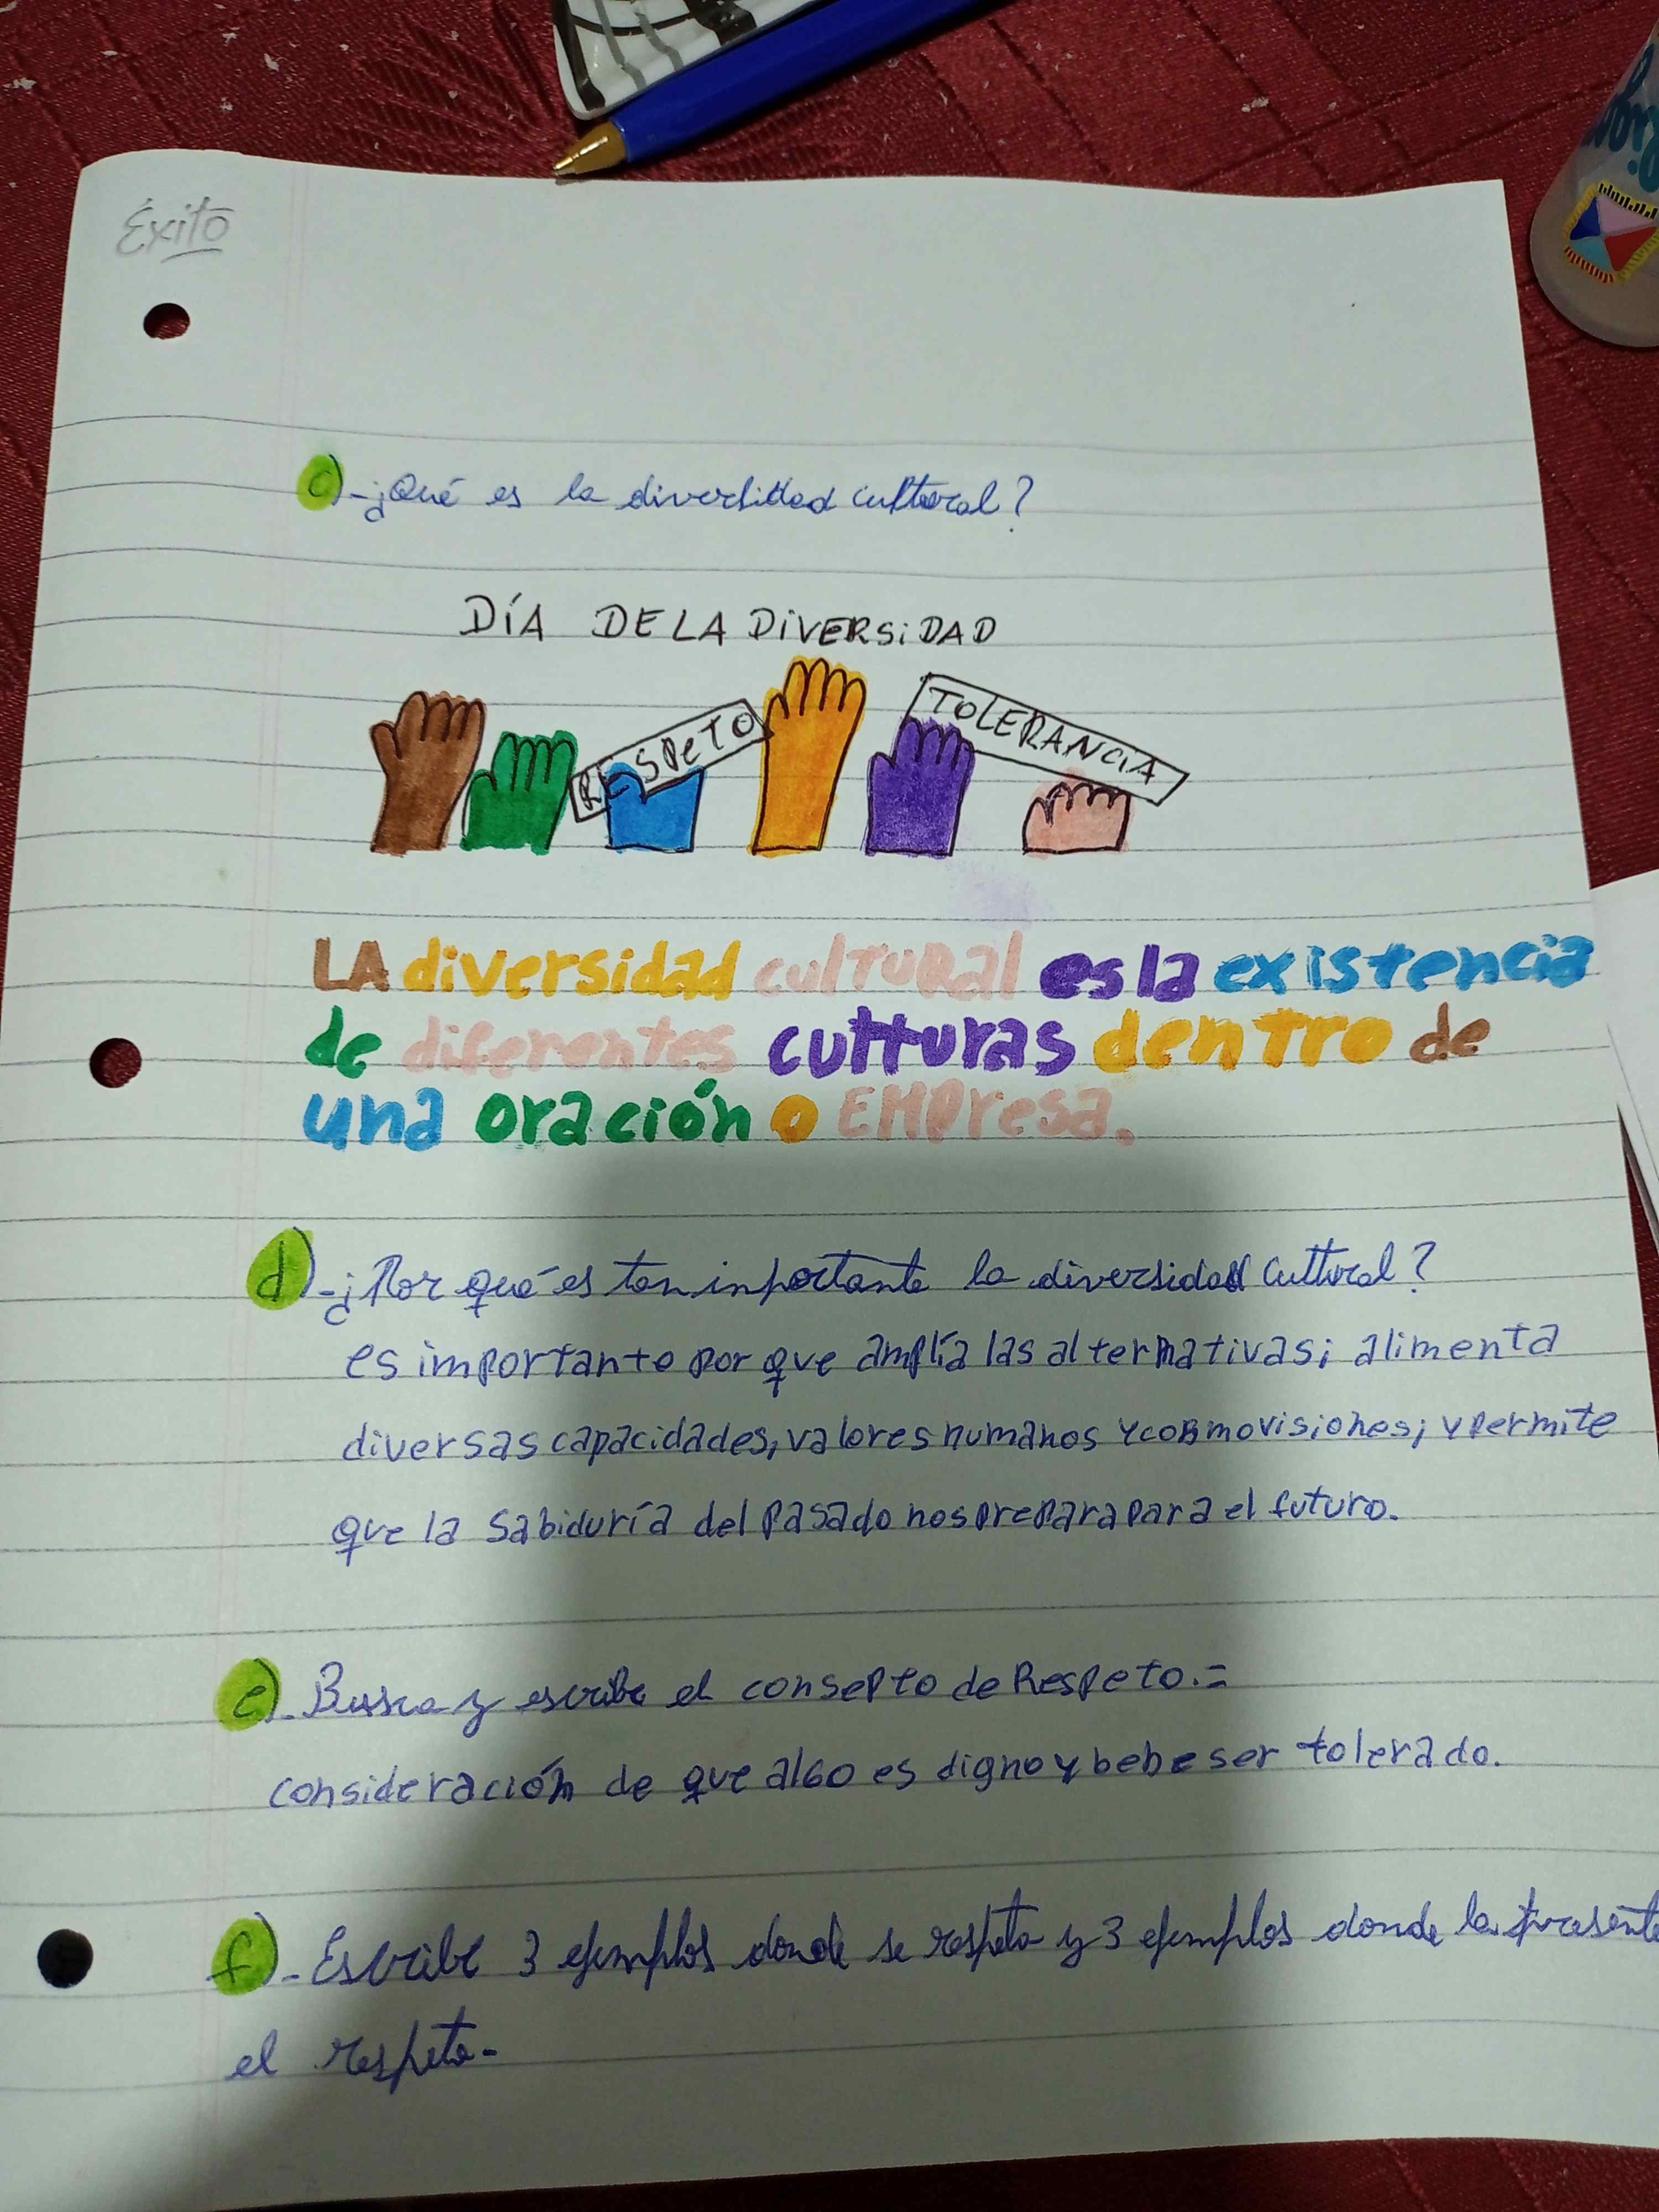 Éxito
c)-¿Qué es la diversidad cultural?
DÍA DE LA DIVERSIDAD
RESPETO
TOLERANCIA
LA diversidad cultural es la existencia
de diferentes culturas dentro de
una oración o EMPresa.
d)-¿Por qué es tan importante la diversidad cultural?
es importante por que amplía las alternativas; alimenta
diversas capacidades, valores humanos y cosmovisiones; y permite
que la sabiduría del pasado nos prepara para el futuro.
e)- Busca y escribe el consepto de Respeto.=
consideración de que algo es digno y bebe ser tolerado.
f)-Escribe 3 ejemplos donde se respeta y 3 ejemplos donde
el respeto-